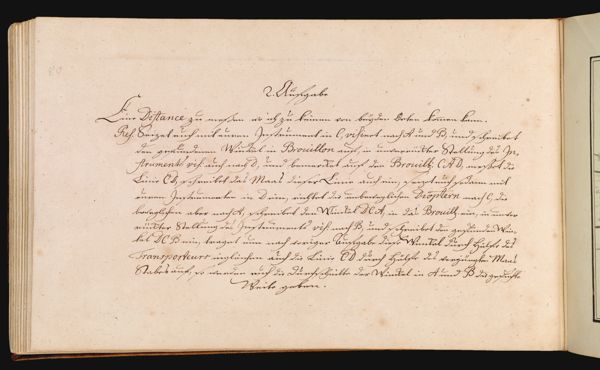 2. Aufgabe
Eine Distance zu messen wo ich zu keinem von beyden Orten kommen kan.
Res. Sezet euch mit euren Instrument in C, visieret nach A und B, und schreibet
den gefundenen Winkel in Brouillon auf, in unverrückter Stellung des In-
struments viß. auch nach D, und bemerket auf den Brouill: CAD, meßet die
Linie CD, schreibet das Maas dieser Linie auch ein, sezet euch sodann mit
euren Instrumenten in D ein, richtet die unbeweglichen Dioptern nach C, die
beweglichen aber nach A, schreibet den Winkel DCA, in das Brouill: ein, in unver-
rückter Stellung des Instruments viß. nach B, und schreibet den gefundenen Win-
kel DCB ein, traget nun nach voriger Aufgabe diese Winkel durch Hülfe des
Transporteurs ingleichen auch die Linie CD durch Hülfe des verjüngten Maas
Stabes auf, so werden euch die Durchschnitte der Winkel in A und B die gesuchte
Weite geben.